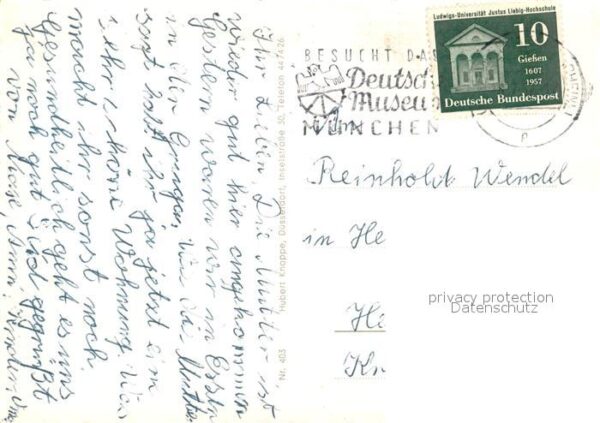 Ihr Lieben, Die Mutter ist
wieder gut hier angekommen
Gestern waren wir in Essen
in der Gruga. Wie die Mutter
sagt habt ihr ja jetzt ein
sehr schöne Wohnung. Was
macht ihr sonst noch
Gesundheitlich geht es uns
ja noch gut. Seid gegrüßt
von
Nr. 403 Hubert Knoppe, Düsseldorf, Inselstraße 50, Telefon 447426
BESUCHT DAS
Deutsche
Museum
MÜNCHEN
Ludwigs-Universität Justus Liebig-Hochschule
10
Gießen
1607
1957
Deutsche Bundespost
Reinholdt Wendel
in He
He
Kr
privacy protection
Datenschutz